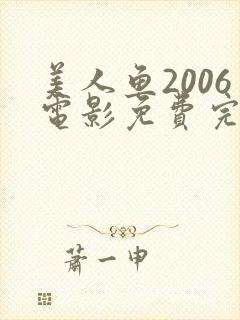 美人鱼2006
電影免費完
蕭一申